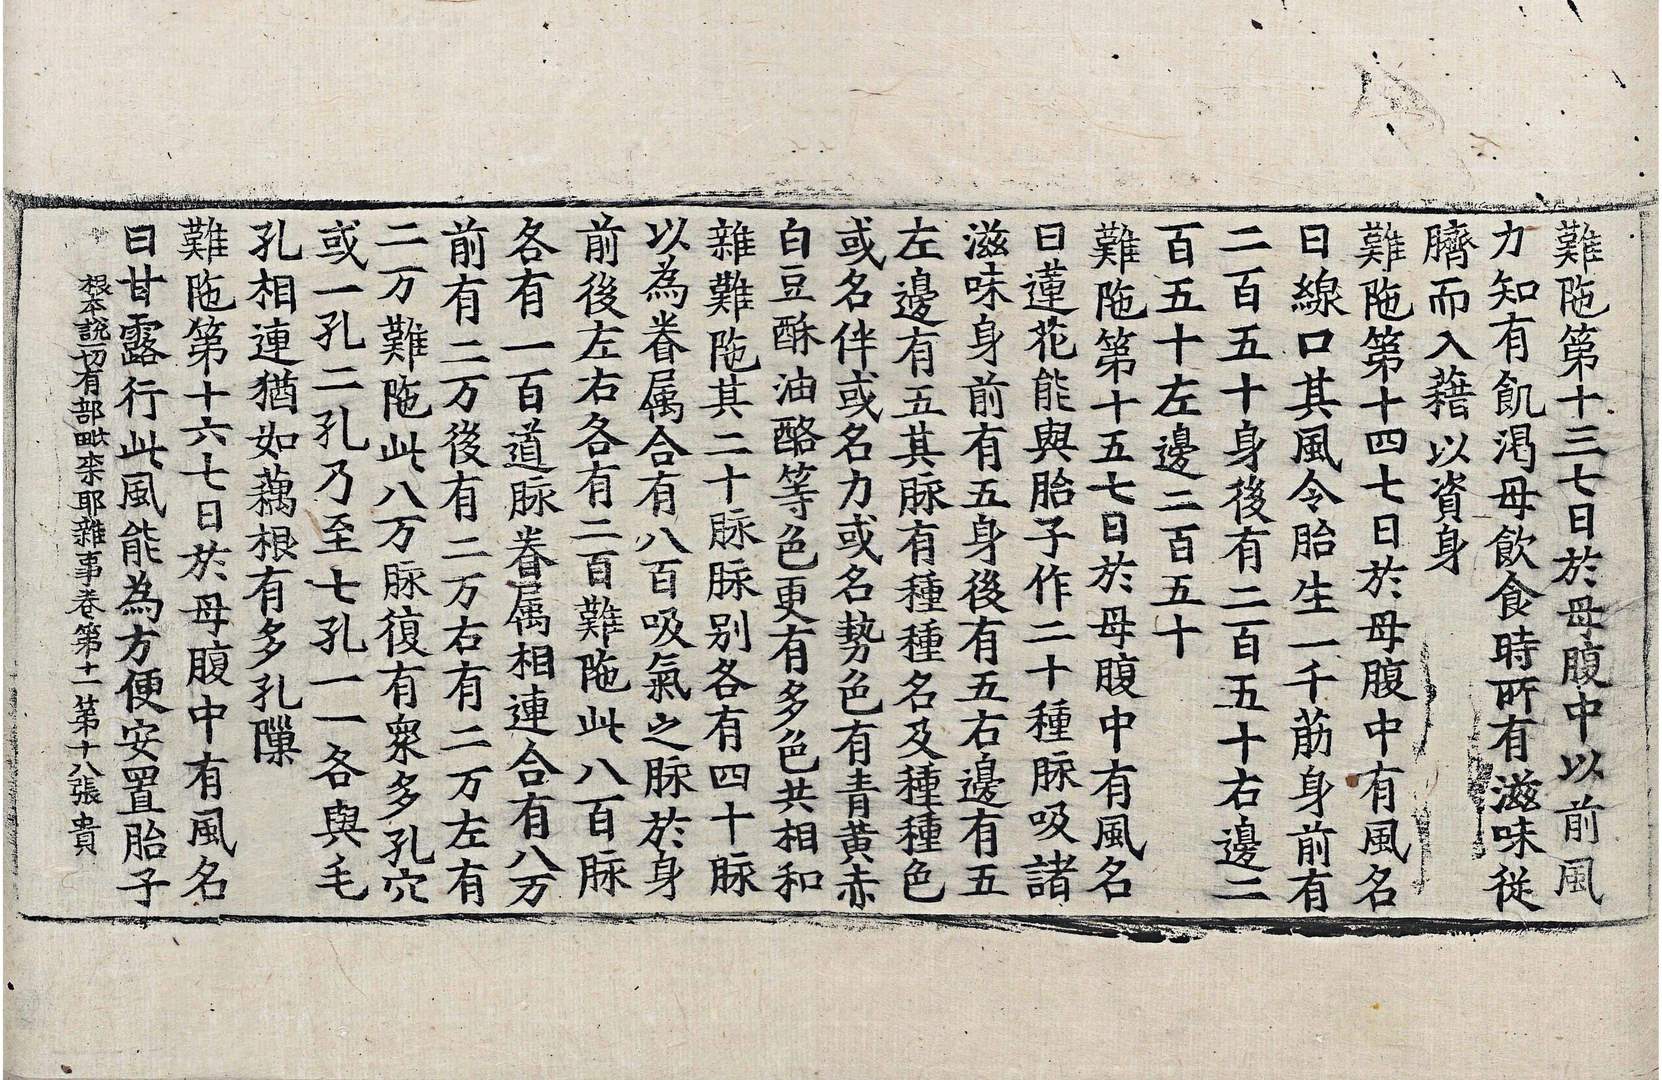 難陁第十三七日於母腹中以前風
力知有飢渇母飲食時所有滋味従
臍而入藉以資身
難陁第十四七日於母腹中有風名
曰線口其風令胎生一千筋身前有
二百五十身後有二百五十右邊二
百五十左邊二百五十
難陁第十五七日於母腹中有風名
曰蓮花能與胎子作二十種脉吸諸
滋味身前有五身後有五右邊有五
左邊有五其脉有種種名及種種色
或名伴或名力或名勢色有青黄赤
白豆酥油酪等色更有多色共相和
雜難陁其二十脉脉別各有四十脉
以為眷属合有八百吸氣之脉於身
前後左右各有二百難陁此八百脉
各有一百道脉眷属相連合有八万
前有二万後有二万右有二万左有
二万難陁此八万脉復有衆多孔穴
或一孔二孔乃至七孔一一各與毛
孔相連猶如藕根有多孔隟
難陁第十六七日於母腹中有風名
曰甘露行此風能為方便安置胎子
根本說一切有部毗柰耶雜事卷第十一 第十八張 貴